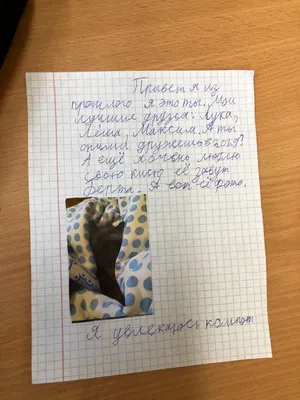 Привет я из
прошлого я это ты. Мои
лучшие друзья: Лука,
Лёша, Максим. А ты
с ними дружешь в 2029?
А ещё я очень люблю
свою кису её завут
Берта. А вот её фото.
Я увлекаюсь компот